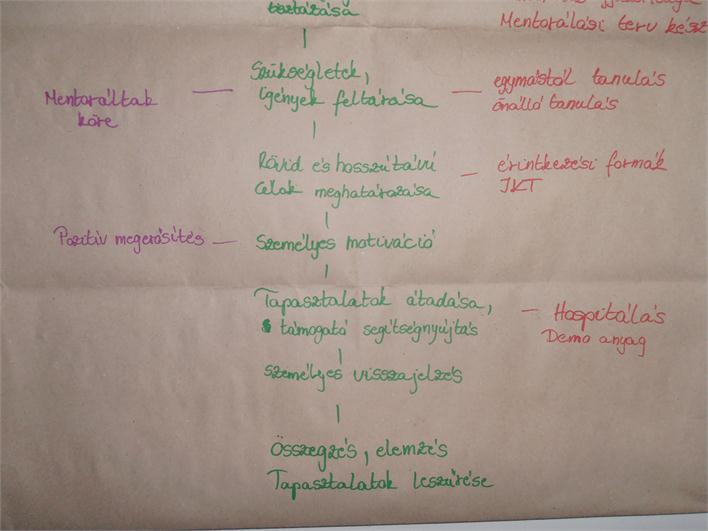 tisztázása
Mentorálási terv kész
Szükségletek,
igények feltárása
Mentoráltak
köre
egymástól tanulás
önálló tanulás
Rövid és hosszútávú
célok meghatározása
érintkezési formák
IKT
Pozitív megerősítés
Személyes motiváció
Tapasztalatok átadása,
támogató segítségnyújtás
Hospitálás
Demo anyag
személyes visszajelzés
Összegzés, elemzés
Tapasztalatok leszűrése